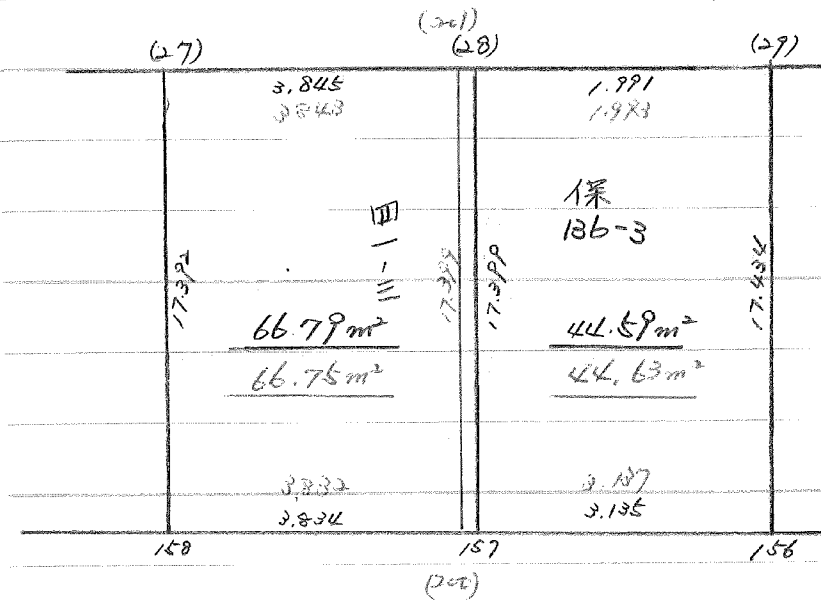 (27)
(28)
(29)
3.845
3.843
1.991
1.993
保
136-3
四一-三
17.392
17.399
17.399
17.434
66.79m²
66.75m²
44.59m²
44.63m²
3.832
3.834
3.137
3.135
158
157
156